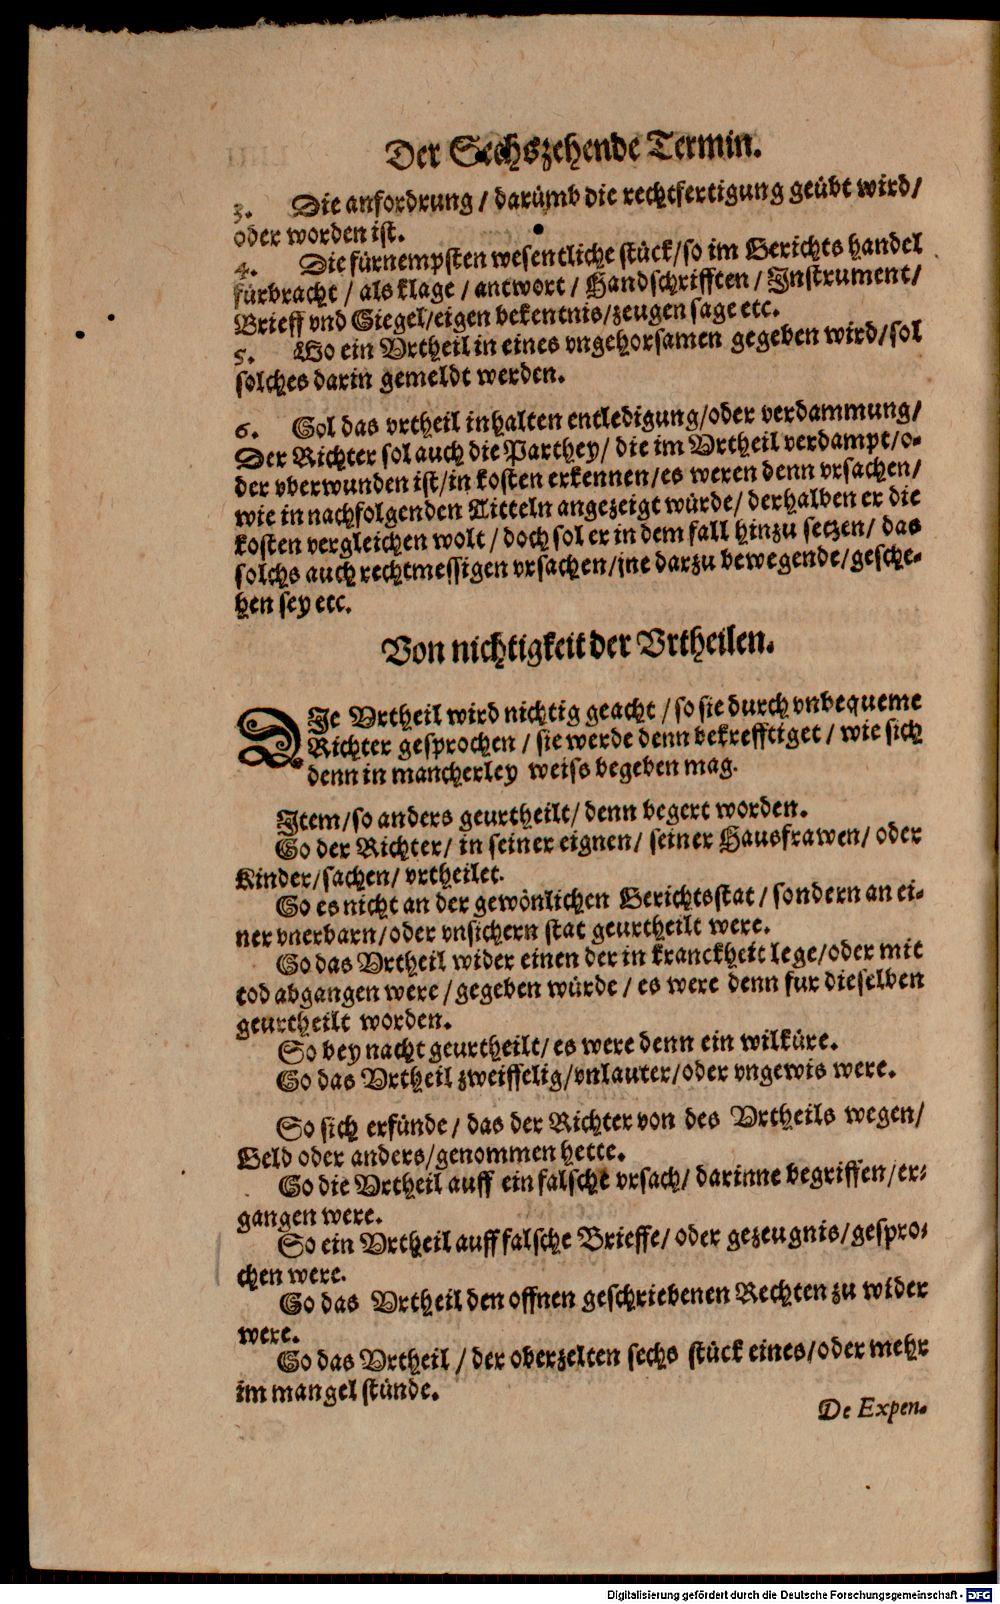 Der Sechszehende Termin.
3. Die anfordrung / darümb die rechtfertigung geübt wird/
oder worden ist.
4. Die fürnempsten wesentliche stück/so im Gerichts handel
fürbracht / als klage / antwort / Handschrifften / Instrument/
Brieff vnd Siegel/eigen bekentnis/zeugen sage etc.
5. Wo ein Vrtheil in eines vngehorsamen gegeben wird/sol
solches darin gemeldt werden.
6. Sol das vrtheil inhalten entledigung/oder verdammung/
Der Richter sol auch die Parthey/ die im Vrtheil verdampt/o-
der vberwunden ist/in kosten erkennen/es weren denn vrsachen/
wie in nachfolgenden Titteln angezeigt würde/ derhalben er die
kosten vergleichen wolt / doch sol er in dem fall hinzu setzen/ das
solchs auch rechtmessigen vrsachen/jne darzu bewegende/gesche-
hen sey etc.
Von nichtigkeit der Vrtheilen.
DIe Vrtheil wird nichtig geacht / so sie durch vnbequeme
Richter gesprochen / sie werde denn bekrefftiget / wie sich
denn in mancherley weiss begeben mag.
Item/so anders geurtheilt/ denn begert worden.
So der Richter/ in seiner eignen/ seiner Hausfrawen/ oder
Kinder/sachen/ vrtheilet.
So es nicht an der gewönlichen Gerichtsstat / sondern an ei-
ner vnerbarn/oder vnsichern stat geurtheilt were.
So das Vrtheil wider einen der in kranckheit lege/oder mit
tod abgangen were / gegeben würde / es were denn fur dieselben
geurtheilt worden.
So bey nacht geurtheilt/ es were denn ein wilküre.
So das Vrtheil zweiffelig/vnlauter/oder vngewis were.
So sich erfünde / das der Richter von des Vrtheils wegen/
Geld oder anders/genommen hette.
So die Vrtheil auff ein falsche vrsach/ darinne begriffen/er-
gangen were.
So ein Vrtheil auff falsche Brieffe/ oder gezeugnis/gespro-
chen were.
So das Vrtheil den offnen geschriebenen Rechten zu wider
were.
So das Vrtheil / der oberzelten sechs stück eines/oder mehr
im mangel stünde.
De Expen.
Digitalisierung gefördert durch die Deutsche Forschungsgemeinschaft - DFG